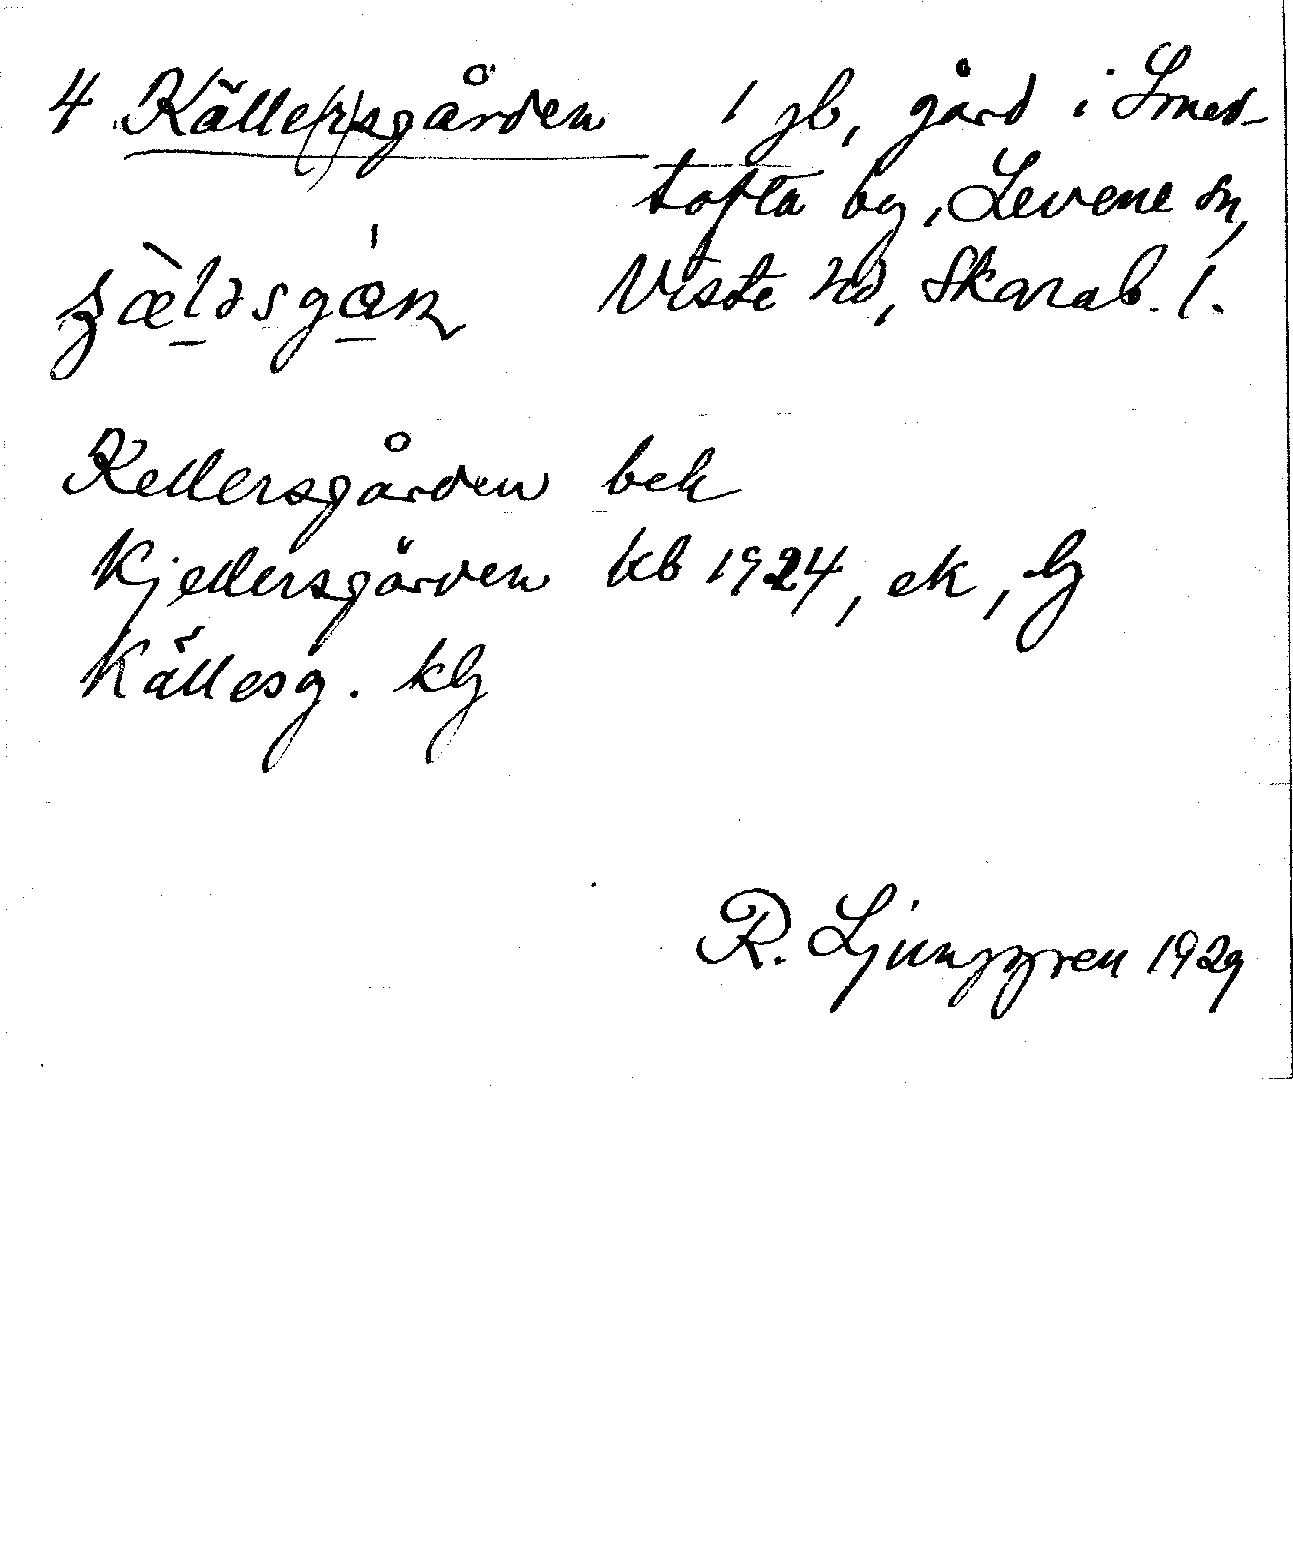 4 Källe(r)sgården 1 jb, gård i Smed-
tofta by, Levene sn,
Viste hd, Skarab. l.
Kellersgården bek
Kjellersgården kb 1924, ek, lj
Källesg. klj
R. Ljunggren 1929